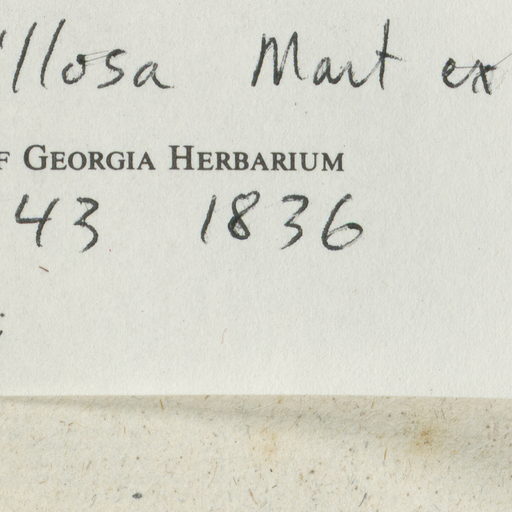 illosa Mart ex
F GEORGIA HERBARIUM
43 1836